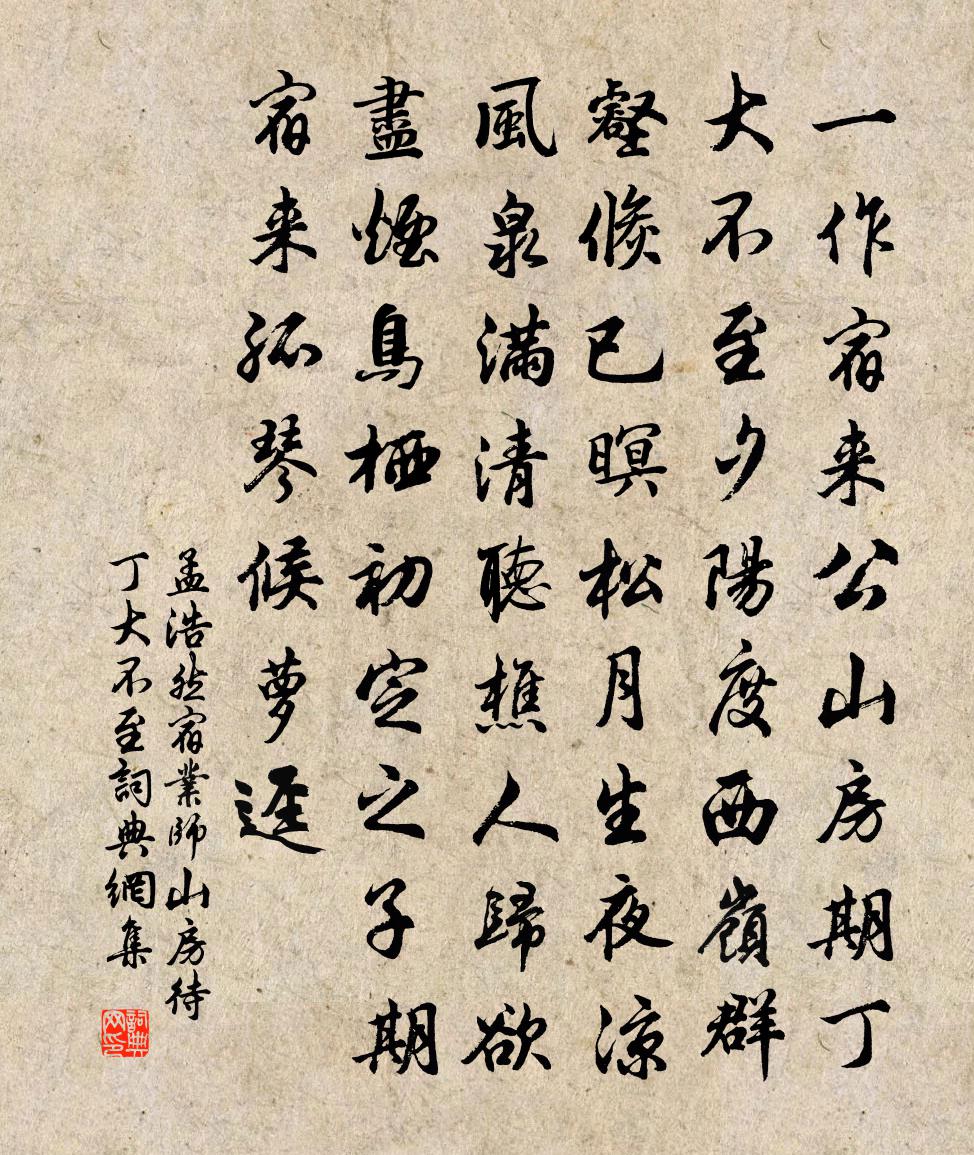 一作宿来公山房期丁
大不至夕陽度西嶺群
壑倏已暝松月生夜涼
風泉滿清聽樵人歸欲
盡煙鳥栖初定之子期
宿来孤琴候夢逕
孟浩然宿業師山房待
丁大不至詞典網集
詞典
网印